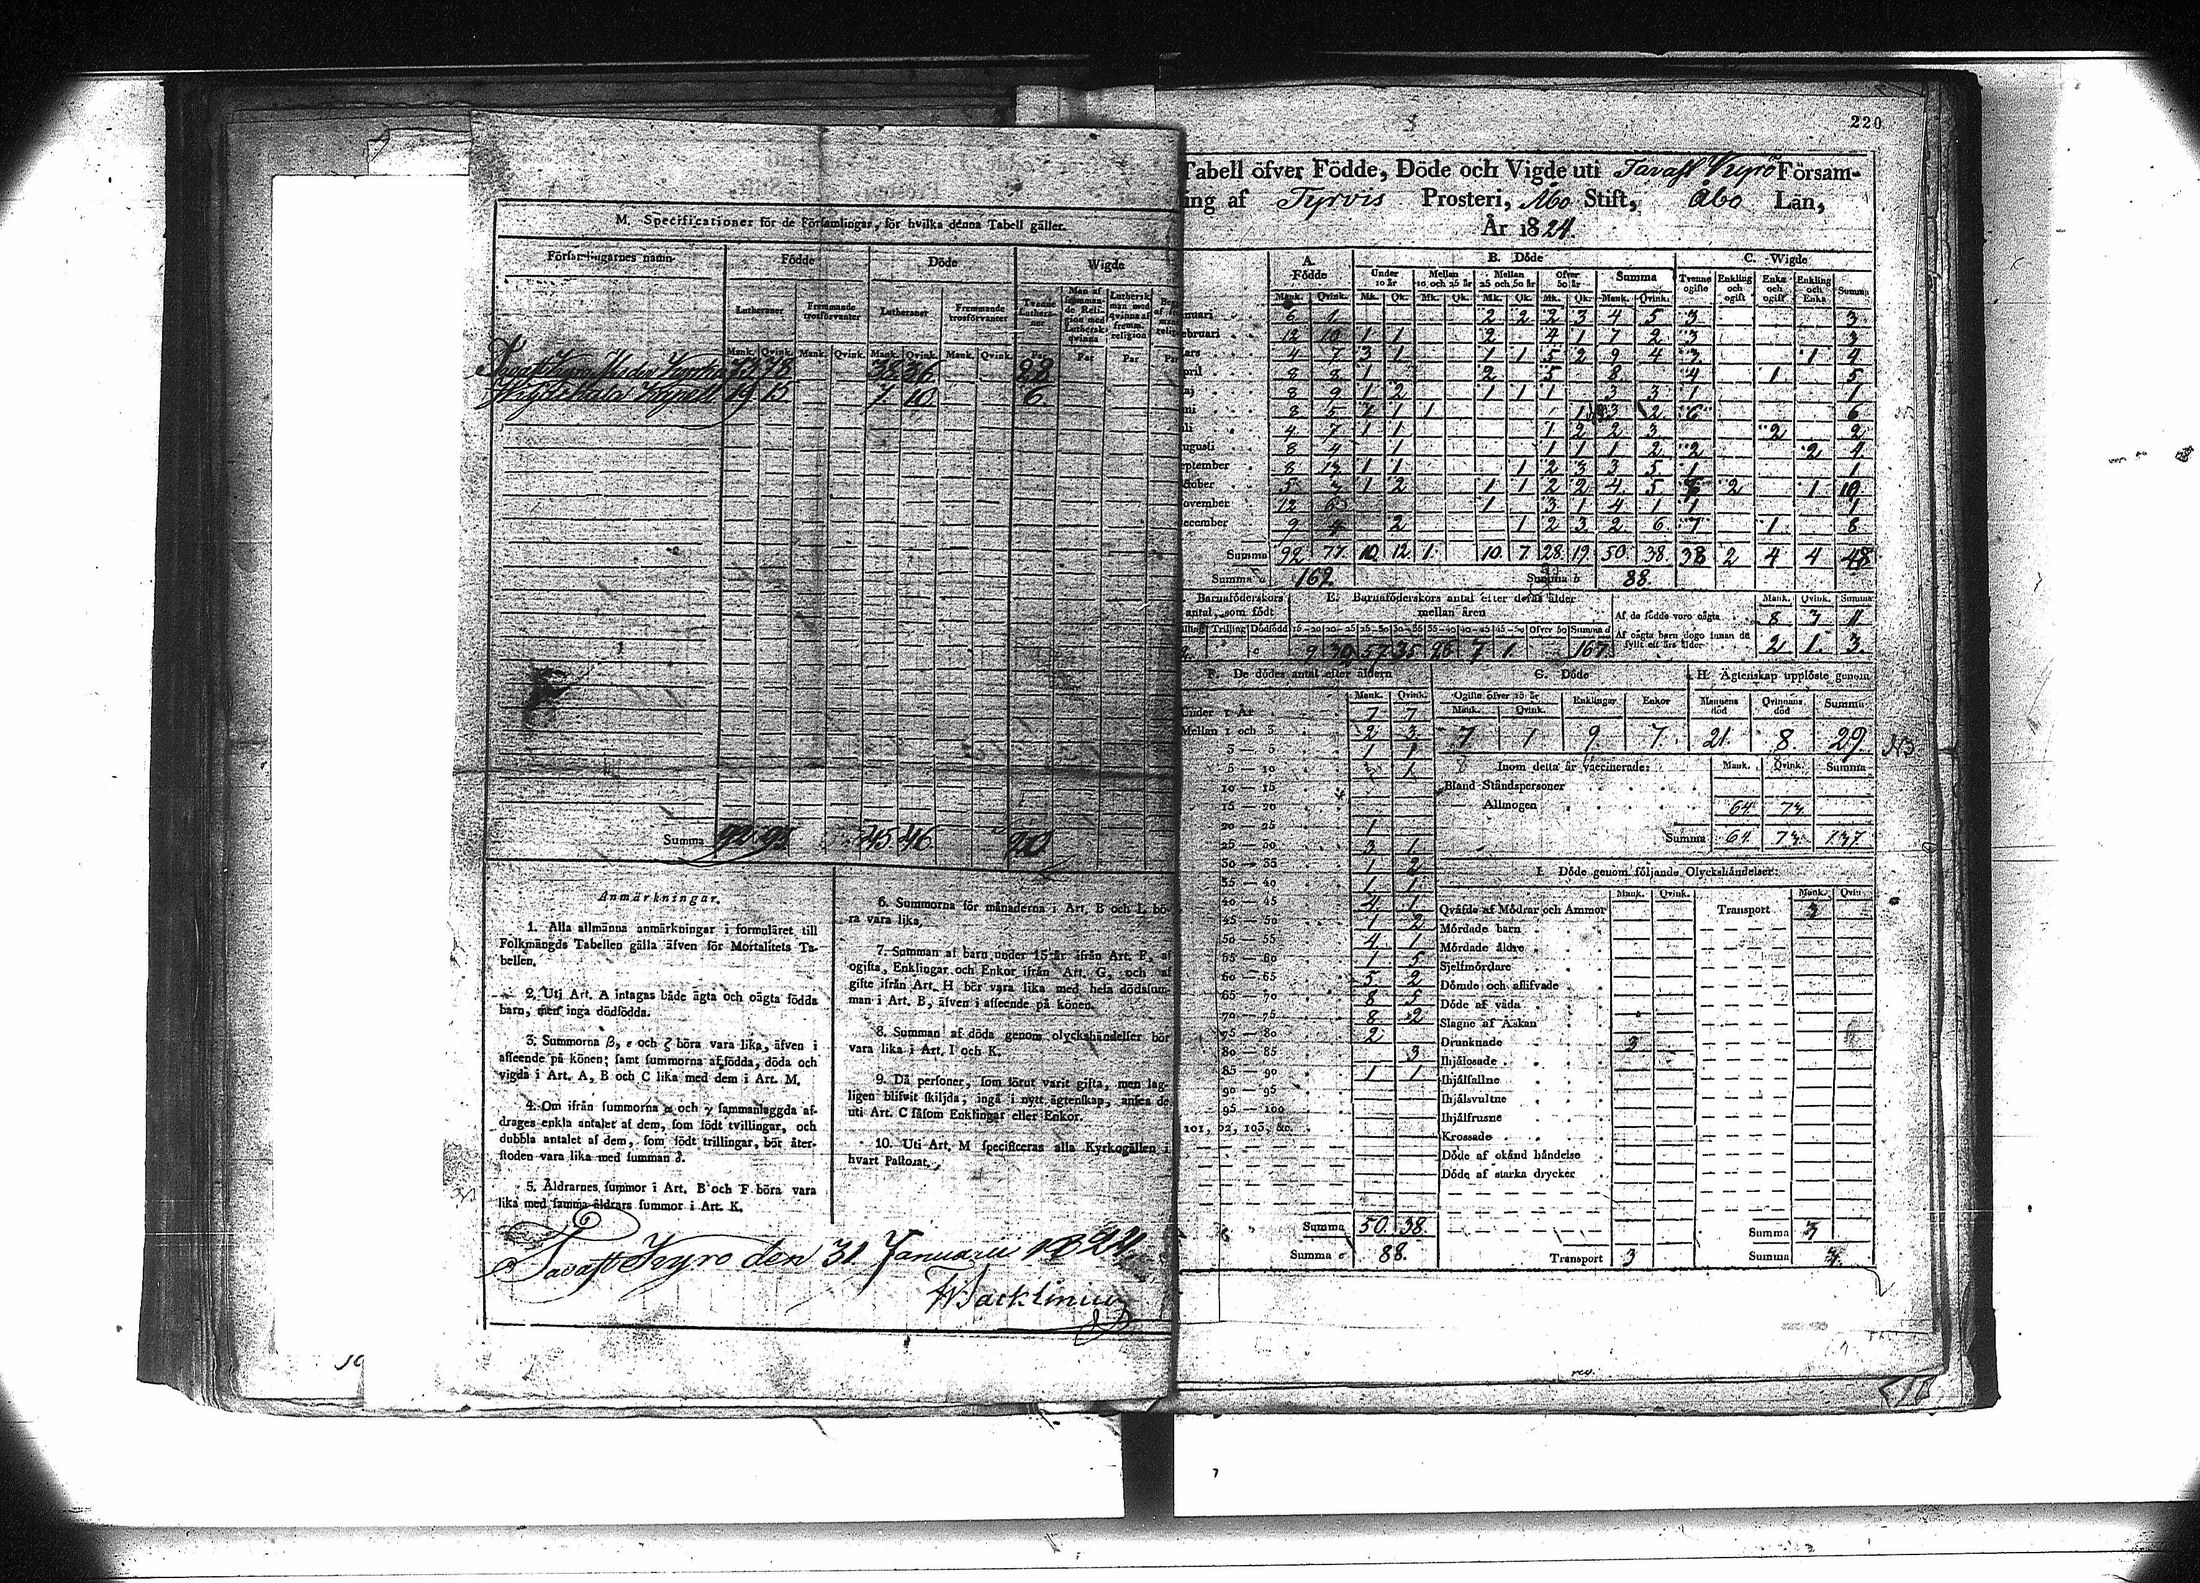 M. Specificationer för de Församlingar, för hvilka denna Tabell gäller.
Församlingarnes namn Födde Döde Wigde
Lutheraner Fremmande trosförvanter Lutheraner Fremmande trosförvanter Tvenne Lutheraner Man af fremmande Religion med Luthersk qvinna Luthersk man med qvinna af fremm. religion
Mank. Qvink. Mank. Qvink. Mank. Qvink. Mank. Qvink. Par Par Par
78 38 36 28
19 15 7 10 6
Summa 92 93 45 46 20
Anmärkningar.
1. Alla allmänna anmärkningar i formuläret till
Folkmängds Tabellen gälla äfven för Mortalitets Ta-
bellen.
2. Uti Art. A intagas både ägta och oägta födda
barn, men inga dödfödda.
3. Summorna β, ε och ζ böra vara lika, äfven i
afseende på könen; samt summorna af födda, döda och
vigda i Art. A, B och C lika med dem i Art. M.
4. Om ifrån summorna α och γ sammanlaggda af-
drages enkla antalet af dem, som födt tvillingar, och
dubbla antalet af dem, som födt trillingar, bör åter-
stoden vara lika med summan δ.
5. Åldrarnes summor i Art. B och F böra vara
lika med samma åldrars summor i Art. K.
6. Summorna för månaderna i Art. B och L bö-
ra vara lika.
7. Summan af barn under 15 år ifrån Art. F, af
ogifta, Enklingar och Enkor ifrån Art. G, och af
gifte ifrån Art. H bör vara lika med hela dödssum-
man i Art. B, äfven i afseende på könen.
8. Summan af döda genom olyckshändelser bör
vara lika i Art. I och K.
9. Då personer, som förut varit gifta, men lag-
ligen blifvit skiljda, ingå i nytt ägtenskap, anses de
uti Art. C såsom Enklingar eller Enkor.
10. Uti Art. M specificeras alla Kyrkogällen i
hvart Pastorat.
Tavast Kyro den 31 Januarii 1824
220
Tabell öfver Födde, Döde och Vigde uti Tavast Kyrö Försam-
ing af Tyrvis Prosteri, Åbo Stift, Åbo Län,
År 1824.
A. Födde B. Döde C. Wigde
Under 10 år Mellan 10 och 25 år Mellan 25 och 50 år Öfver 50 år Summa Tvenne ogifte Enkling och ogift Enka och ogift Enkling och Enka Summa
Mank. Qvink. Mk. Qk. Mk. Qk. Mk. Qk. Mk. Qk. Mank. Qvink.
nuari 6 1 2 2 2 3 4 5 3 3
ebruari 12 10 1 1 2 4 1 7 2 3 3
ars 4 7 3 1 1 1 5 2 9 4 3 1 4
pril 8 8 1 2 5 8 4 1 5
aj 8 9 1 2 1 1 1 3 3 1 1
ni 8 5 1 1 1 3 2 6 6
li 4 7 1 1 1 2 2 3 2 2
ugusti 8 4 1 1 1 1 2 2 2 4
eptember 8 13 1 1 1 2 3 3 5 1 1
ktober 5 3 1 2 1 1 2 2 4 5 2 1 10
ovember 12 6 1 3 1 4 1 1 1
ecember 9 4 2 1 2 3 2 6 7 1 8
Summa 92 77 10 12 1 10 7 28 19 50 38 38 2 4 4 48
Summa a 169. Summa b 88.
Barnaföderskors antal som födt E. Barnaföderskors antal efter deras ålder mellan åren
Trilling Dödfödd 15-20 20-25 25-30 30-35 35-40 40-45 45-50 Öfver 50 Summa d
9 30 57 35 28 7 1 167
Mank. Qvink. Summa
Af de födde voro oägta 8 3 11
Af oägta barn dogo innan de fyllt ett års ålder 2 1 3
F. De dödes antal efter åldern
Mank. Qvink.
Under 1 År 7 7
Mellan 1 och 3 2 3
3 — 5 1 1
5 — 10 1
10 — 15
15 — 20
20 — 25 1
25 — 30 3 1
30 — 35 1 2
35 — 40 1 1
40 — 45 4 1
45 — 50 1 2
50 — 55 4 1
55 — 60 1 5
60 — 65 5 2
65 — 70 8 5
70 — 75 8 2
75 — 80 2
80 — 85 3
85 — 90 1 1
90 — 95
95 — 100
101, 102, 103, &c.
Summa 50. 38.
Summa c 88.
G. Döde
Ogifte öfver 15 år Enklingar Enkor
Mank. Qvink.
7 1 9. 7.
H. Ägtenskap upplöste genom
Mannens död Qvinnans död Summa
21. 8. 29.
Inom detta år vaccinerade: Mank. Qvink. Summa
Bland Ståndspersoner
Allmogen 64 73
Summa 64 73 137
I. Döde genom följande Olyckshändelser:
Mank. Qvink. Mank. Qvin
Qväfde af Mödrar och Ammor Transport 3
Mördade barn
Mördade äldre
Sjelfmördare
Dömde och aflifvade
Döde af våda
Slagne af Åskan
Drunknade 3
Ihjälosade
Ihjälfallne
Ihjälsvultne
Ihjälfrusne
Krossade
Döde af okänd händelse
Döde af starka drycker
Summa 3
Transport 3 Summa 3.
rev.